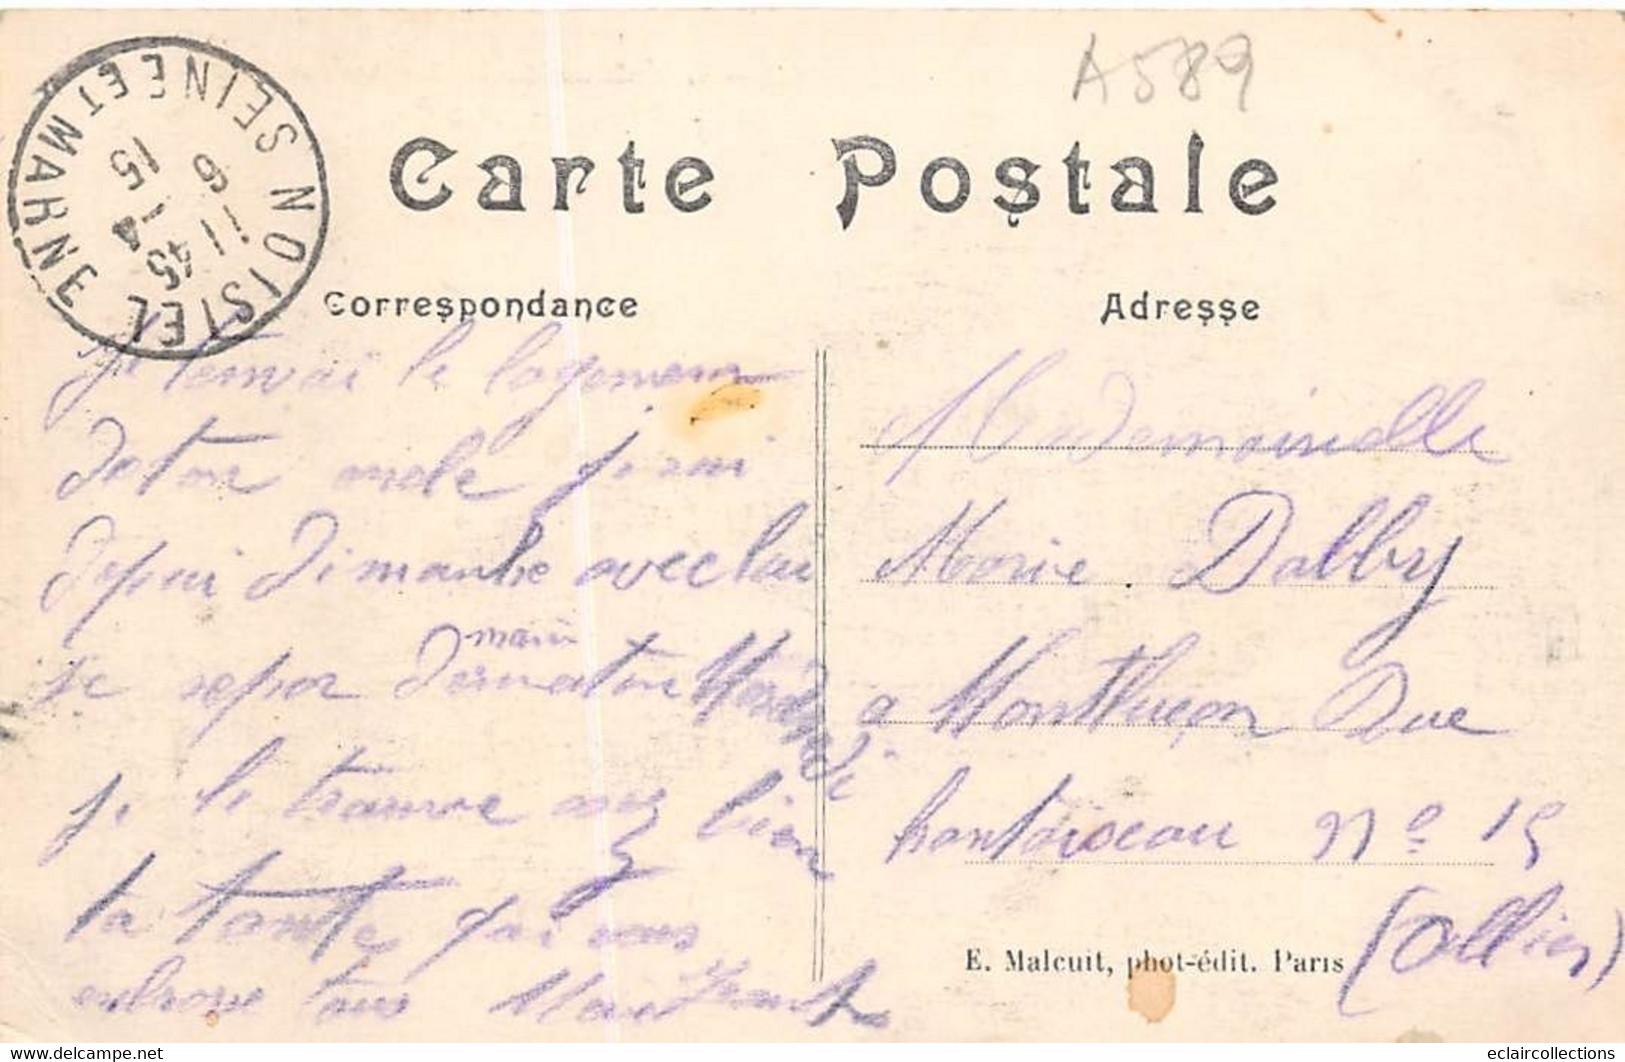 A589
NOISIEL
SEINE ET MARNE
11 45
6 - 4
15
Carte Postale
Correspondance
Adresse
Je tenvoi le logement
de ton oncle je sui
depui Dimanche avec lui
main
se repor
Mardi
je le trouve assez bien
ta tante qui vous
enbrase tous
Mademoiselle
Marie Dalbry
a Montluçon Rue
n° 15
(Allier)
E. Malcuit, phot-édit. Paris
delcampe.net
eclaircollections